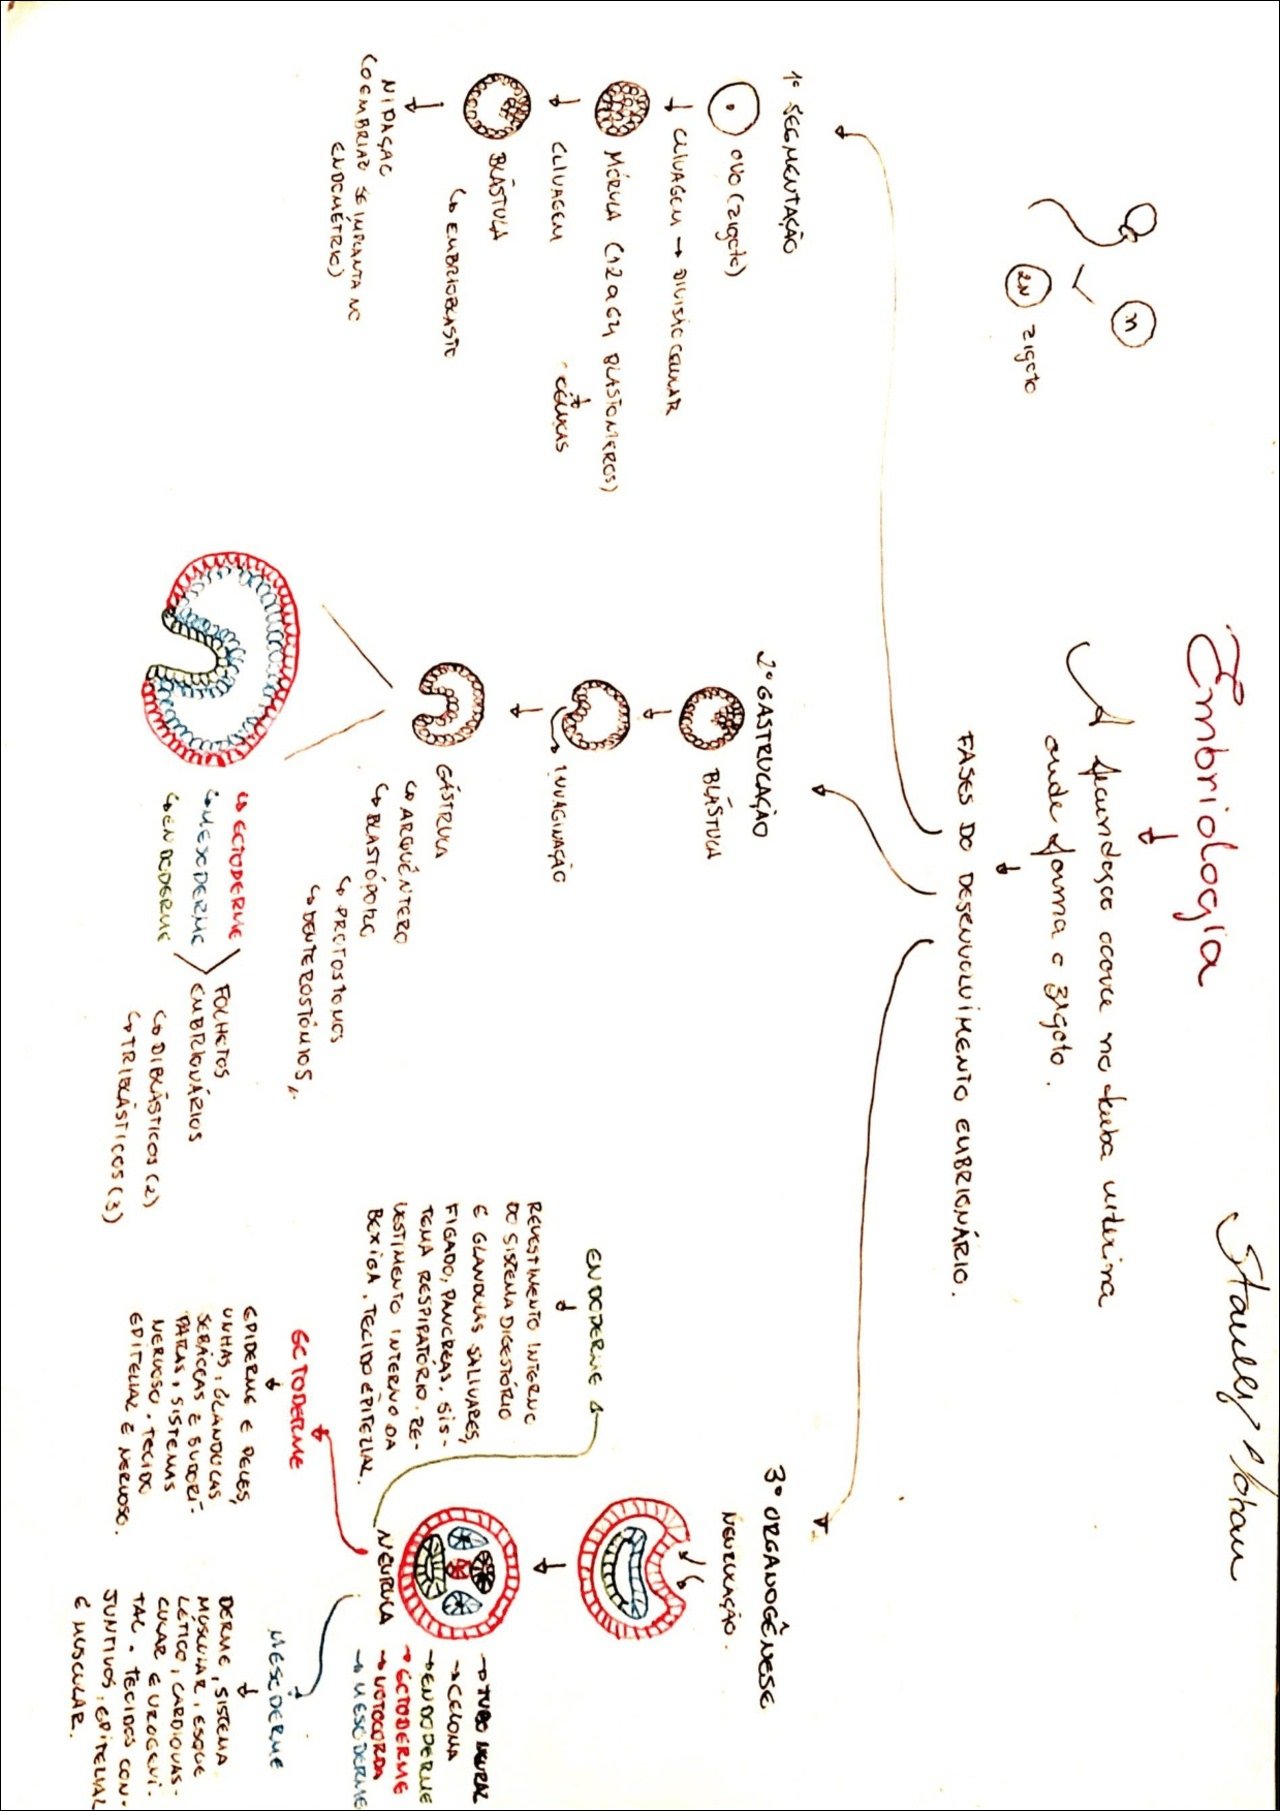 Embriologia
Stanlley Nohan
A fecundação ocorre na tuba uterina
onde forma o zigoto.
n
2N
zigoto
FASES DO DESENVOLVIMENTO EMBRIONÁRIO.
1º SEGMENTAÇÃO
OVO (zigoto)
CLIVAGEM → DIVISÃO CELULAR
MÓRULA (12 a 64 BLASTÔMEROS)
CÉLULAS
CLIVAGEM
BLÁSTULA
EMBRIOBLASTO
NIDAÇÃO
(O EMBRIÃO SE IMPLANTA NO
ENDOMÉTRIO)
2º GASTRULAÇÃO
BLÁSTULA
INVAGINAÇÃO
GÁSTRULA
ARQUÊNTERO
BLASTÓPORO
PROTOSTOMOS
DEUTEROSTÔMIOS
ECTODERME
MESODERME
ENDODERME
FOLHETOS
EMBRIONÁRIOS
DIBLÁSTICOS (2)
TRIBLÁSTICOS (3)
3º ORGANOGÊNESE
NEURULAÇÃO.
→ TUBO NEURAL
→ CELOMA
→ ENDODERME
→ ECTODERME
→ NOTOCORDA
→ MESODERME
NÊURULA
ENDODERME
REVESTIMENTO INTERNO
DO SISTEMA DIGESTÓRIO
E GLANDULAS SALIVARES,
FIGADO, PANCREAS. SIS-
TEMA RESPIRATÓRIO. RE-
VESTIMENTO INTERNO DA
BEXIGA. TECIDO EPITELIAL.
ECTODERME
EPIDERME E PELES,
UNHAS, GLANDULAS
SEBÁCEAS E SUDORÍ-
PARAS, SISTEMA
NERVOSO. TECIDO
EPITELIAL E NERVOSO.
MESODERME
DERME, SISTEMA
MÚSCULAR, ESQUE
LÉTICO, CARDIOVAS-
CULAR E UROGENI-
TAL. TECIDOS CON-
JUNTIVOS, EPITELIAL
E MUSCULAR.